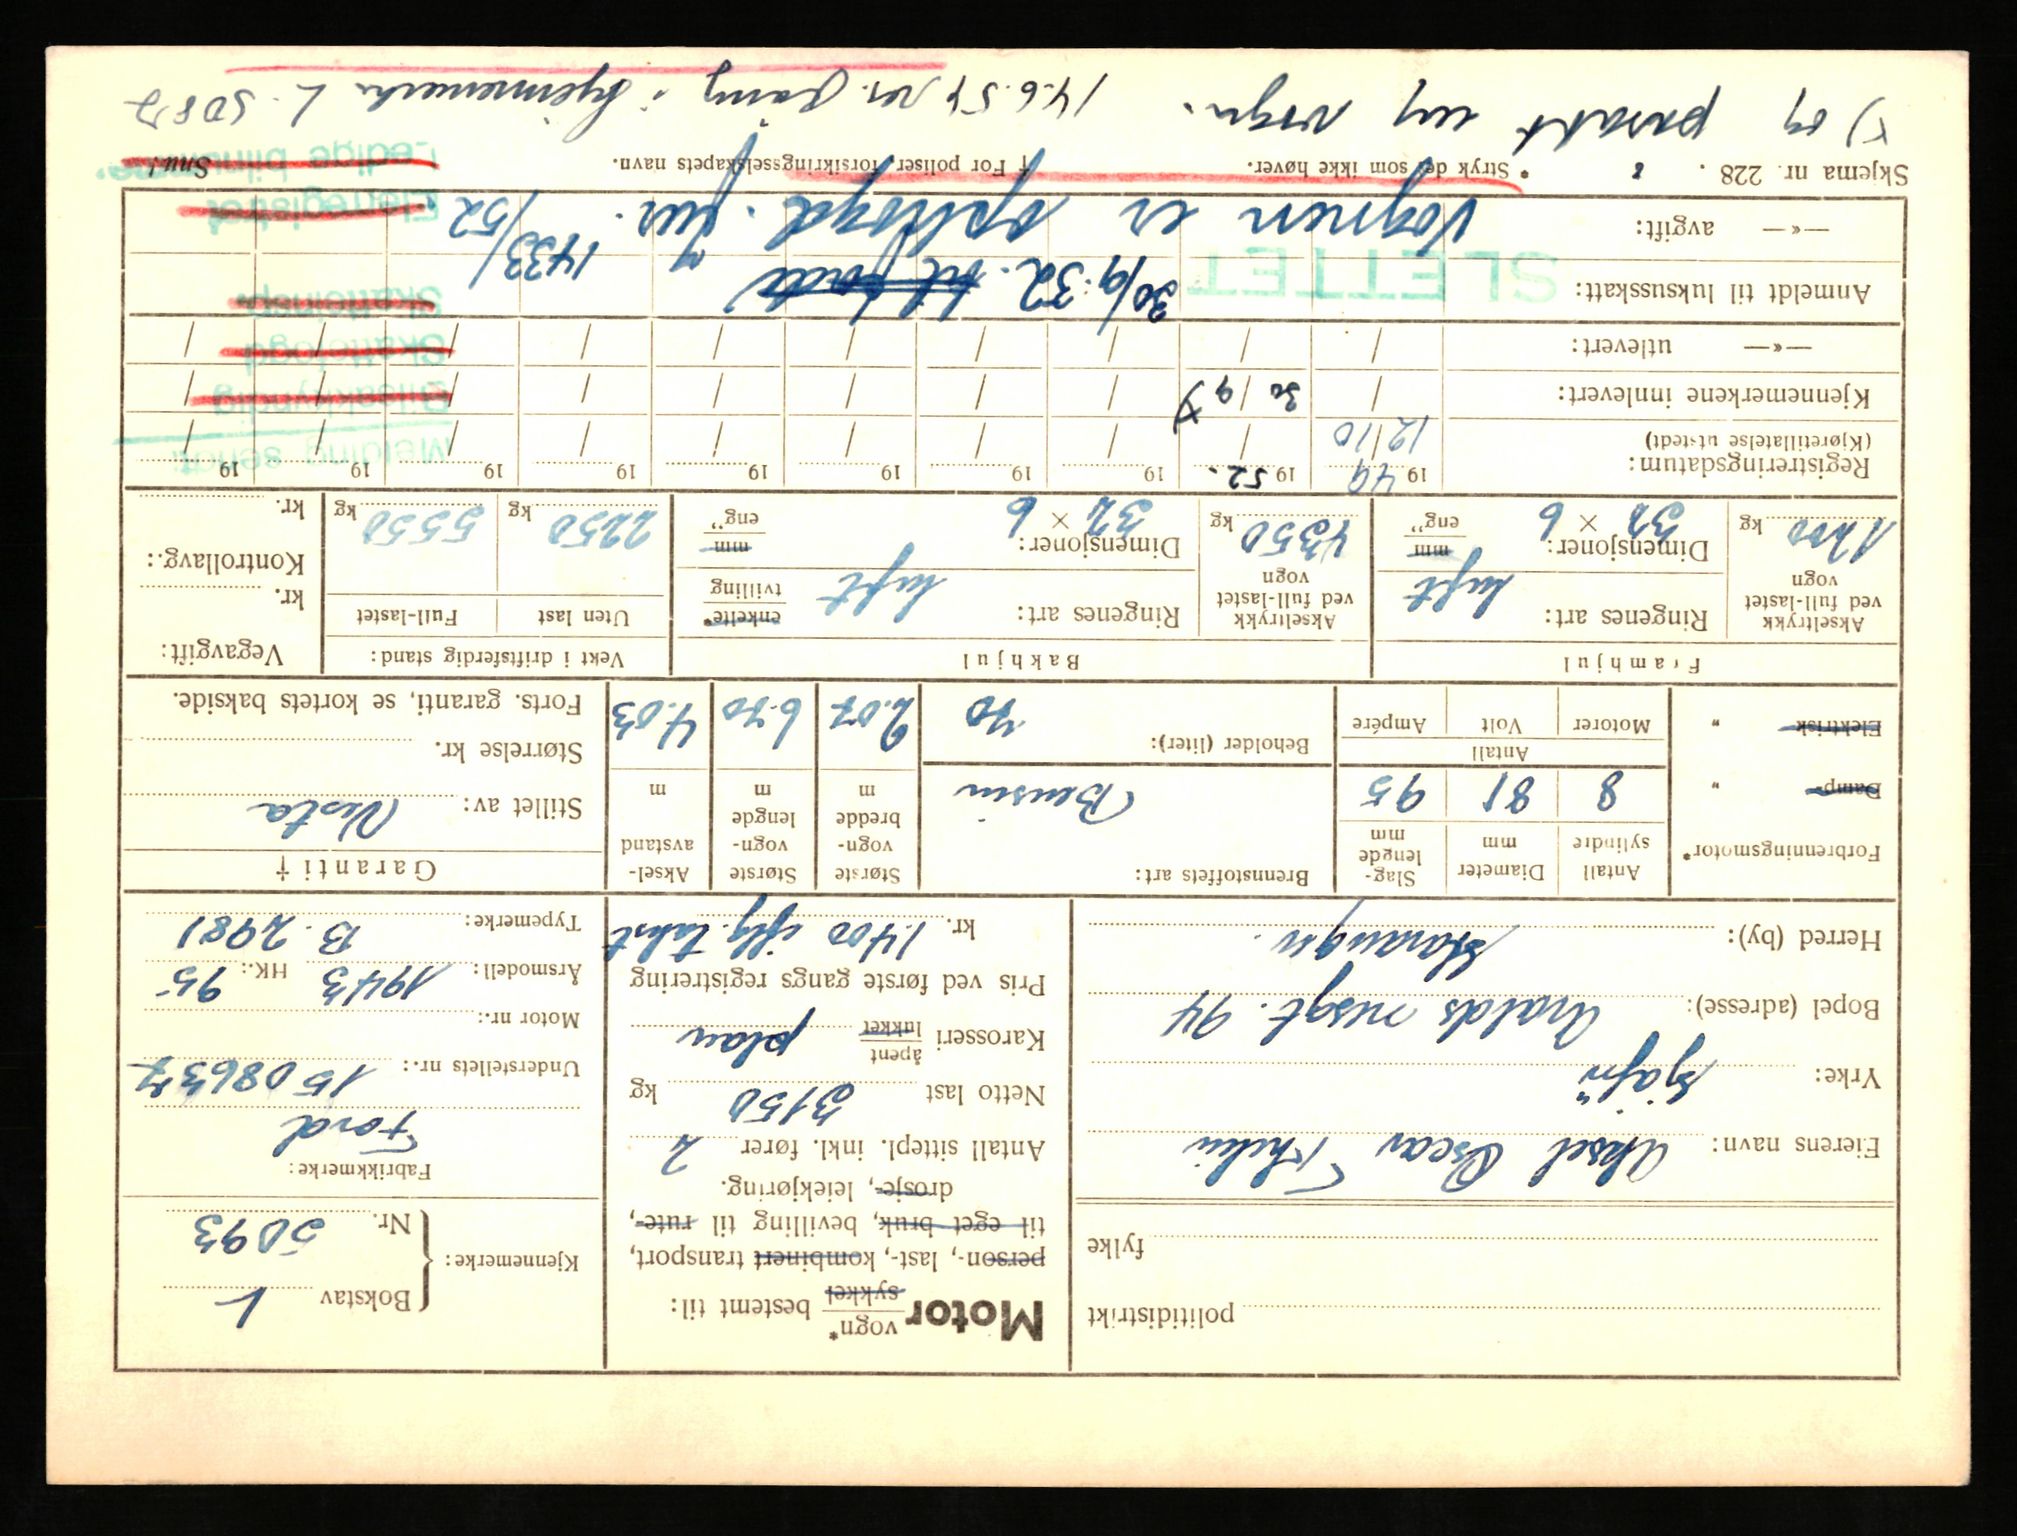 politidistrikt
fylke
Eierens navn: Aksel Oscar Thelin
Yrke: sjåfør
Bopel (adresse): Haralds
gt. 94
Herred (by): Stavanger.
Motor vogn* sykkel bestemt til:
person-, last-, kombinert transport,
til eget bruk, bevilling til rute-,
drosje-, leiekjøring.
Antall sittepl. inkl. fører 2
Netto last 3150 kg
Karosseri åpent lukket plan
Pris ved første gangs registrering
kr. 1.400 iflg. takst
Kjennemerke: Bokstav L
Nr. 5093
Fabrikkmerke:
Ford
Understellets nr.: 1508637
Motor nr.:
Årsmodell: 1943 HK.: 95
Typemerke: B. 2981
Forbrenningsmotor*
Damp- "
Elektrisk "
Antall sylindre 8
Diameter mm 81
Slaglengde mm 95
Antall
Motorer Volt Ampére
Brennstoffets art: Bensin
Beholder (liter): 70
Største vogn-bredde m 2.07
Største vogn-lengde m 6.70
Aksel-avstand m 4.03
Garanti †
Stillet av: Norta
Størrelse kr.
Forts. garanti, se kortets bakside.
Framhjul
Akseltrykk ved full-lastet vogn 1200 kg
Ringenes art: luft
Dimensjoner: 32 × 6 mm eng"
Bakhjul
Akseltrykk ved full-lastet vogn 4350 kg
Ringenes art: luft enkelte* tvilling
Dimensjoner: 32 × 6 mm eng"
Vekt i driftsferdig stand:
Uten last Full-lastet
2250 kg 5550 kg
Vegavgift:
kr.
Kontrollavg.:
kr.
Registreringsdatum: 1949 1952. 19 19 19 19 19 19 19
(Kjøretillatelse utstedt) 12/10 / / / / / / / /
Kjennemerkene innlevert: / 30/9 x) / / / / / / /
—«— utlevert: / / / / / / / / /
Anmeldt til luksusskatt: 30/9.52. til 1433/52
—«— avgift: Vognen er opphogd. Jnr.
SLETTET
Melding sendt:
Bilsakkyndig
Skattefogd
Skatteinsp.
Eierregistret
Ledige bilnumre.
Skjema nr. 228. * Stryk det som ikke høver. † For poliser, forsikringsselskapets navn. Snu!
x) og påsatt ny vogn. 14.6.54
kjennemerke L. 5087